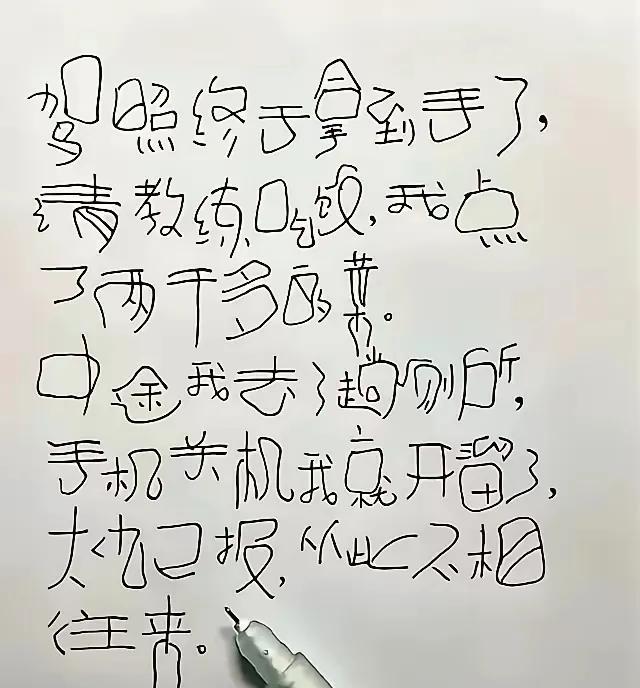 驾照终于拿到手了,
请教练吃饭,我点
了两千多的菜。
中途我去了趟厕所,
手机关机我就开溜了,
大仇已报,从此不相
往来。